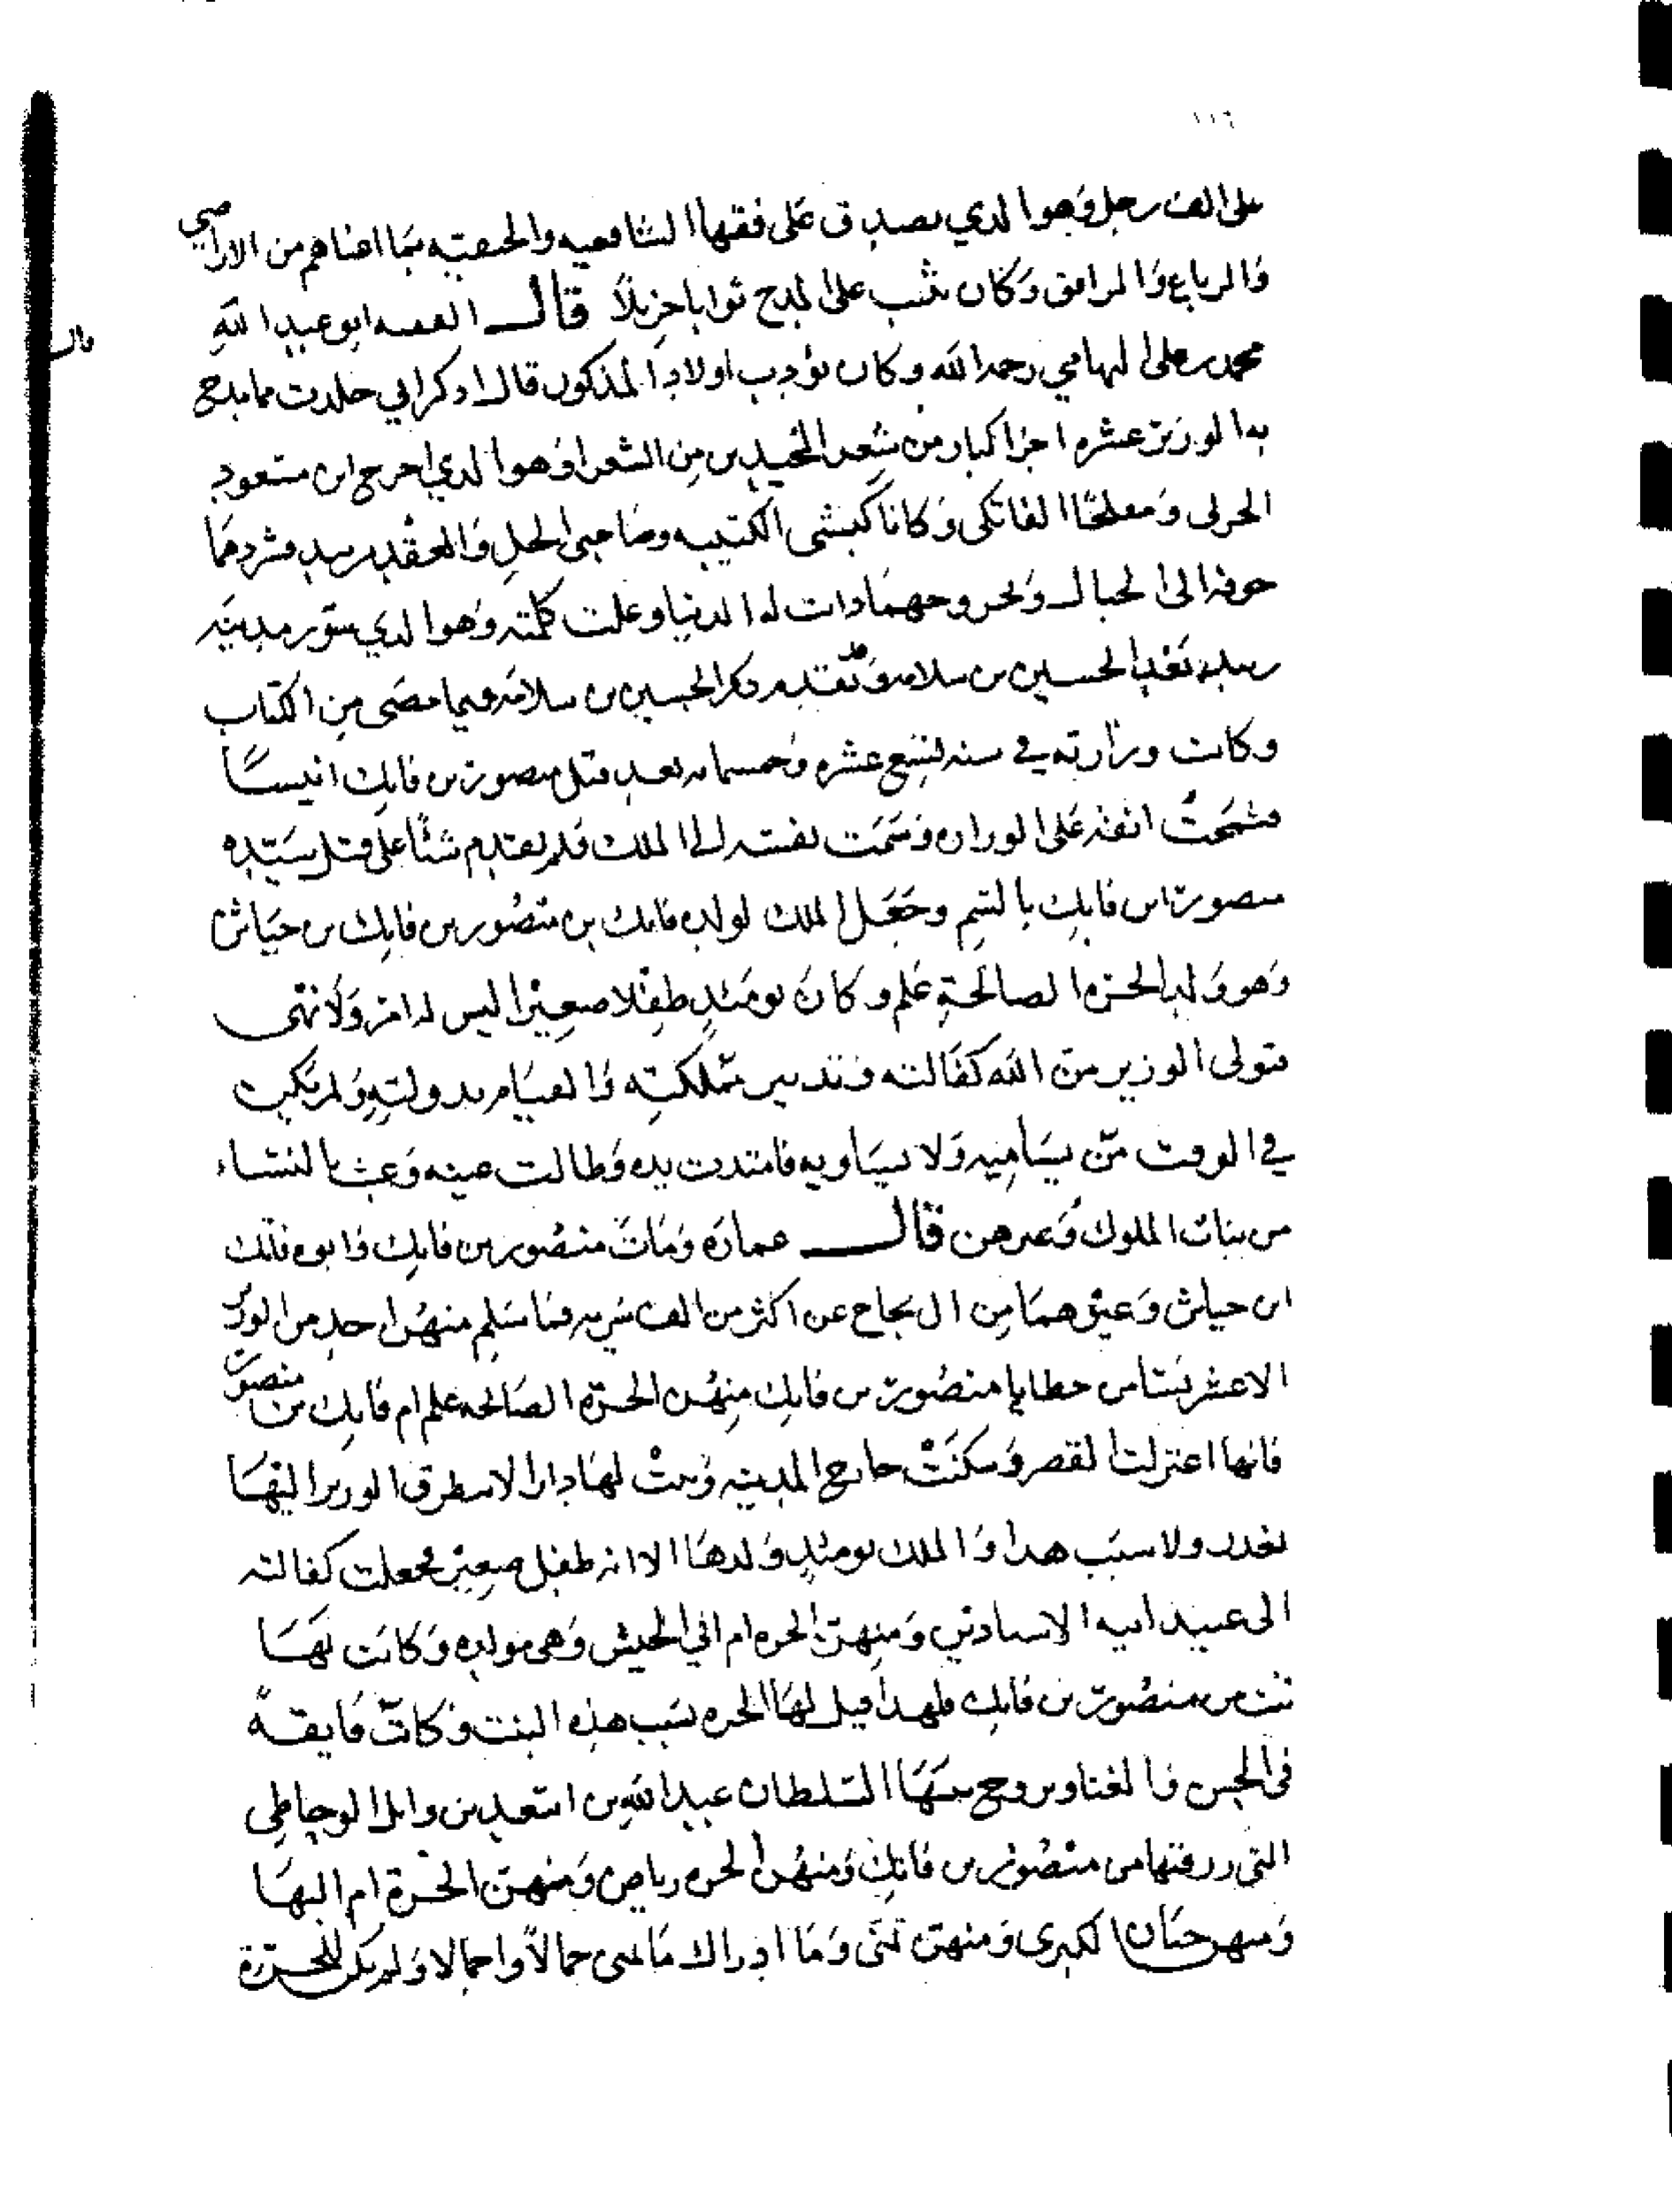 ١١٦
على الف رجل وهو الذي تصدق على فقها الشافعيه والحنفيه بما اغناهم من الاراضي
والرباع والمرافق وكان يثيب على المدح ثوابا جزيلا قال الفقيه ابو عبد الله
محمد بن على التهامي رحمه الله وكان يؤدب اولاد المذكور قال اذكر اني جلدت مما مدح
به الوزير عشره اجزا كبار من شعر المجيدين من الشعرا وهو الذي اخرج ابن مسعود
الحرلى ومفلحا الفاتكى وكانا كبشى الكتيبه وصاحبى الحل والعقد بزبيد فشردهما
خوفه الى الجبال وبخروجهما دانت له الدنيا وعلت كلمته وهو الذي سور مدينه
زبيد بعد الحسين بن سلامه وقد تقدم ذكر الحسين بن سلامه فيما مضى من الكتاب
وكانت وزارته في سنه تسع عشره وخمسمايه بعد قتل منصور بن فاتك انيسا
فشمخت انفه على الوزاره وسمت نفسه الى الملك فلم يقدم شئا على قتل سيده
منصور بن فاتك بالسم وجعل الملك لولده فاتك بن منصور بن فاتك بن جياش
وهو ولد الحره الصالحة علم وكان يومئذ طفلا صغيرا ليس له امر ولا نهى
فتولى الوزير من الله كفالته وتدبير مملكته والقيام بدولته ولم يكن
في الوقت من يساميه ولا يساويه فامتدت يده وطالت عينه وعبث بالنساء
من بنات الملوك وغيرهن قال عماره ومات منصور بن فاتك وابوه فاتك
ابن جياش وغيرهما من ال نجاح عن اكثر من الف سريه فما سلم منهن احد من الوزير
الا عشر نسا من حظايا منصور بن فاتك منهن الحره الصالحه علم ام فاتك بن منصور
فانها اعتزلت القصر وسكنت خارج المدينه وبنت لها دارا لا يتطرق الوزير اليها
بعذر ولا سبب هذا والملك يومئذ ولدها الا انه طفل صغير فجعلت كفالته
الى عبيد ابيه الاستاذين ومنهن الحره ام ابي الجيش وهى مولده وكانت لها
بنت من منصور بن فاتك فلهذا قيل لها الحره بسبب هذه البنت وكانت فايقة
فى الحسن والغنا وتزوج منها السلطان عبد الله بن اسعد بن وايل الوحاظي
التى رزقتها من منصور بن فاتك ومنهن الحره رياض ومنهن الحرة ام البها
ومنهن جنان الكبرى ومنهن تمنى وما ادراك ما تمنى جمالا واجمالا ولم يكن للحرة
قال